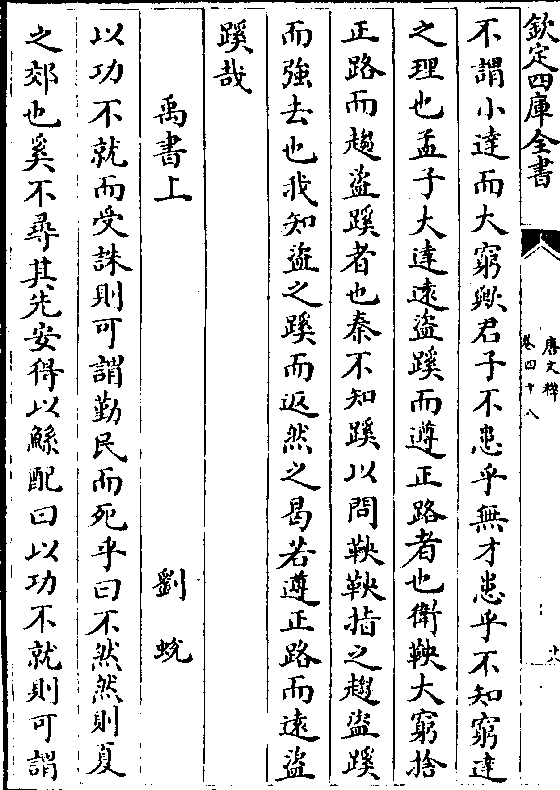 欽定四庫全書
唐文粹
卷四十八
不謂小達而大窮歟君子不患乎無才患乎不知窮達
之理也孟子大達遠盜蹊而遵正路者也衛鞅大窮捨
正路而趨盜蹊者也秦不知蹊以問鞅鞅指之趨盜蹊
而強去也我知盜之蹊而返然之曷若遵正路而遠盜
蹊哉
禹書上　劉蛻
以功不就而受誅則可謂勤民而死乎曰不然然則夏
之郊也奚不尋其先安得以鯀配曰以功不就則可謂